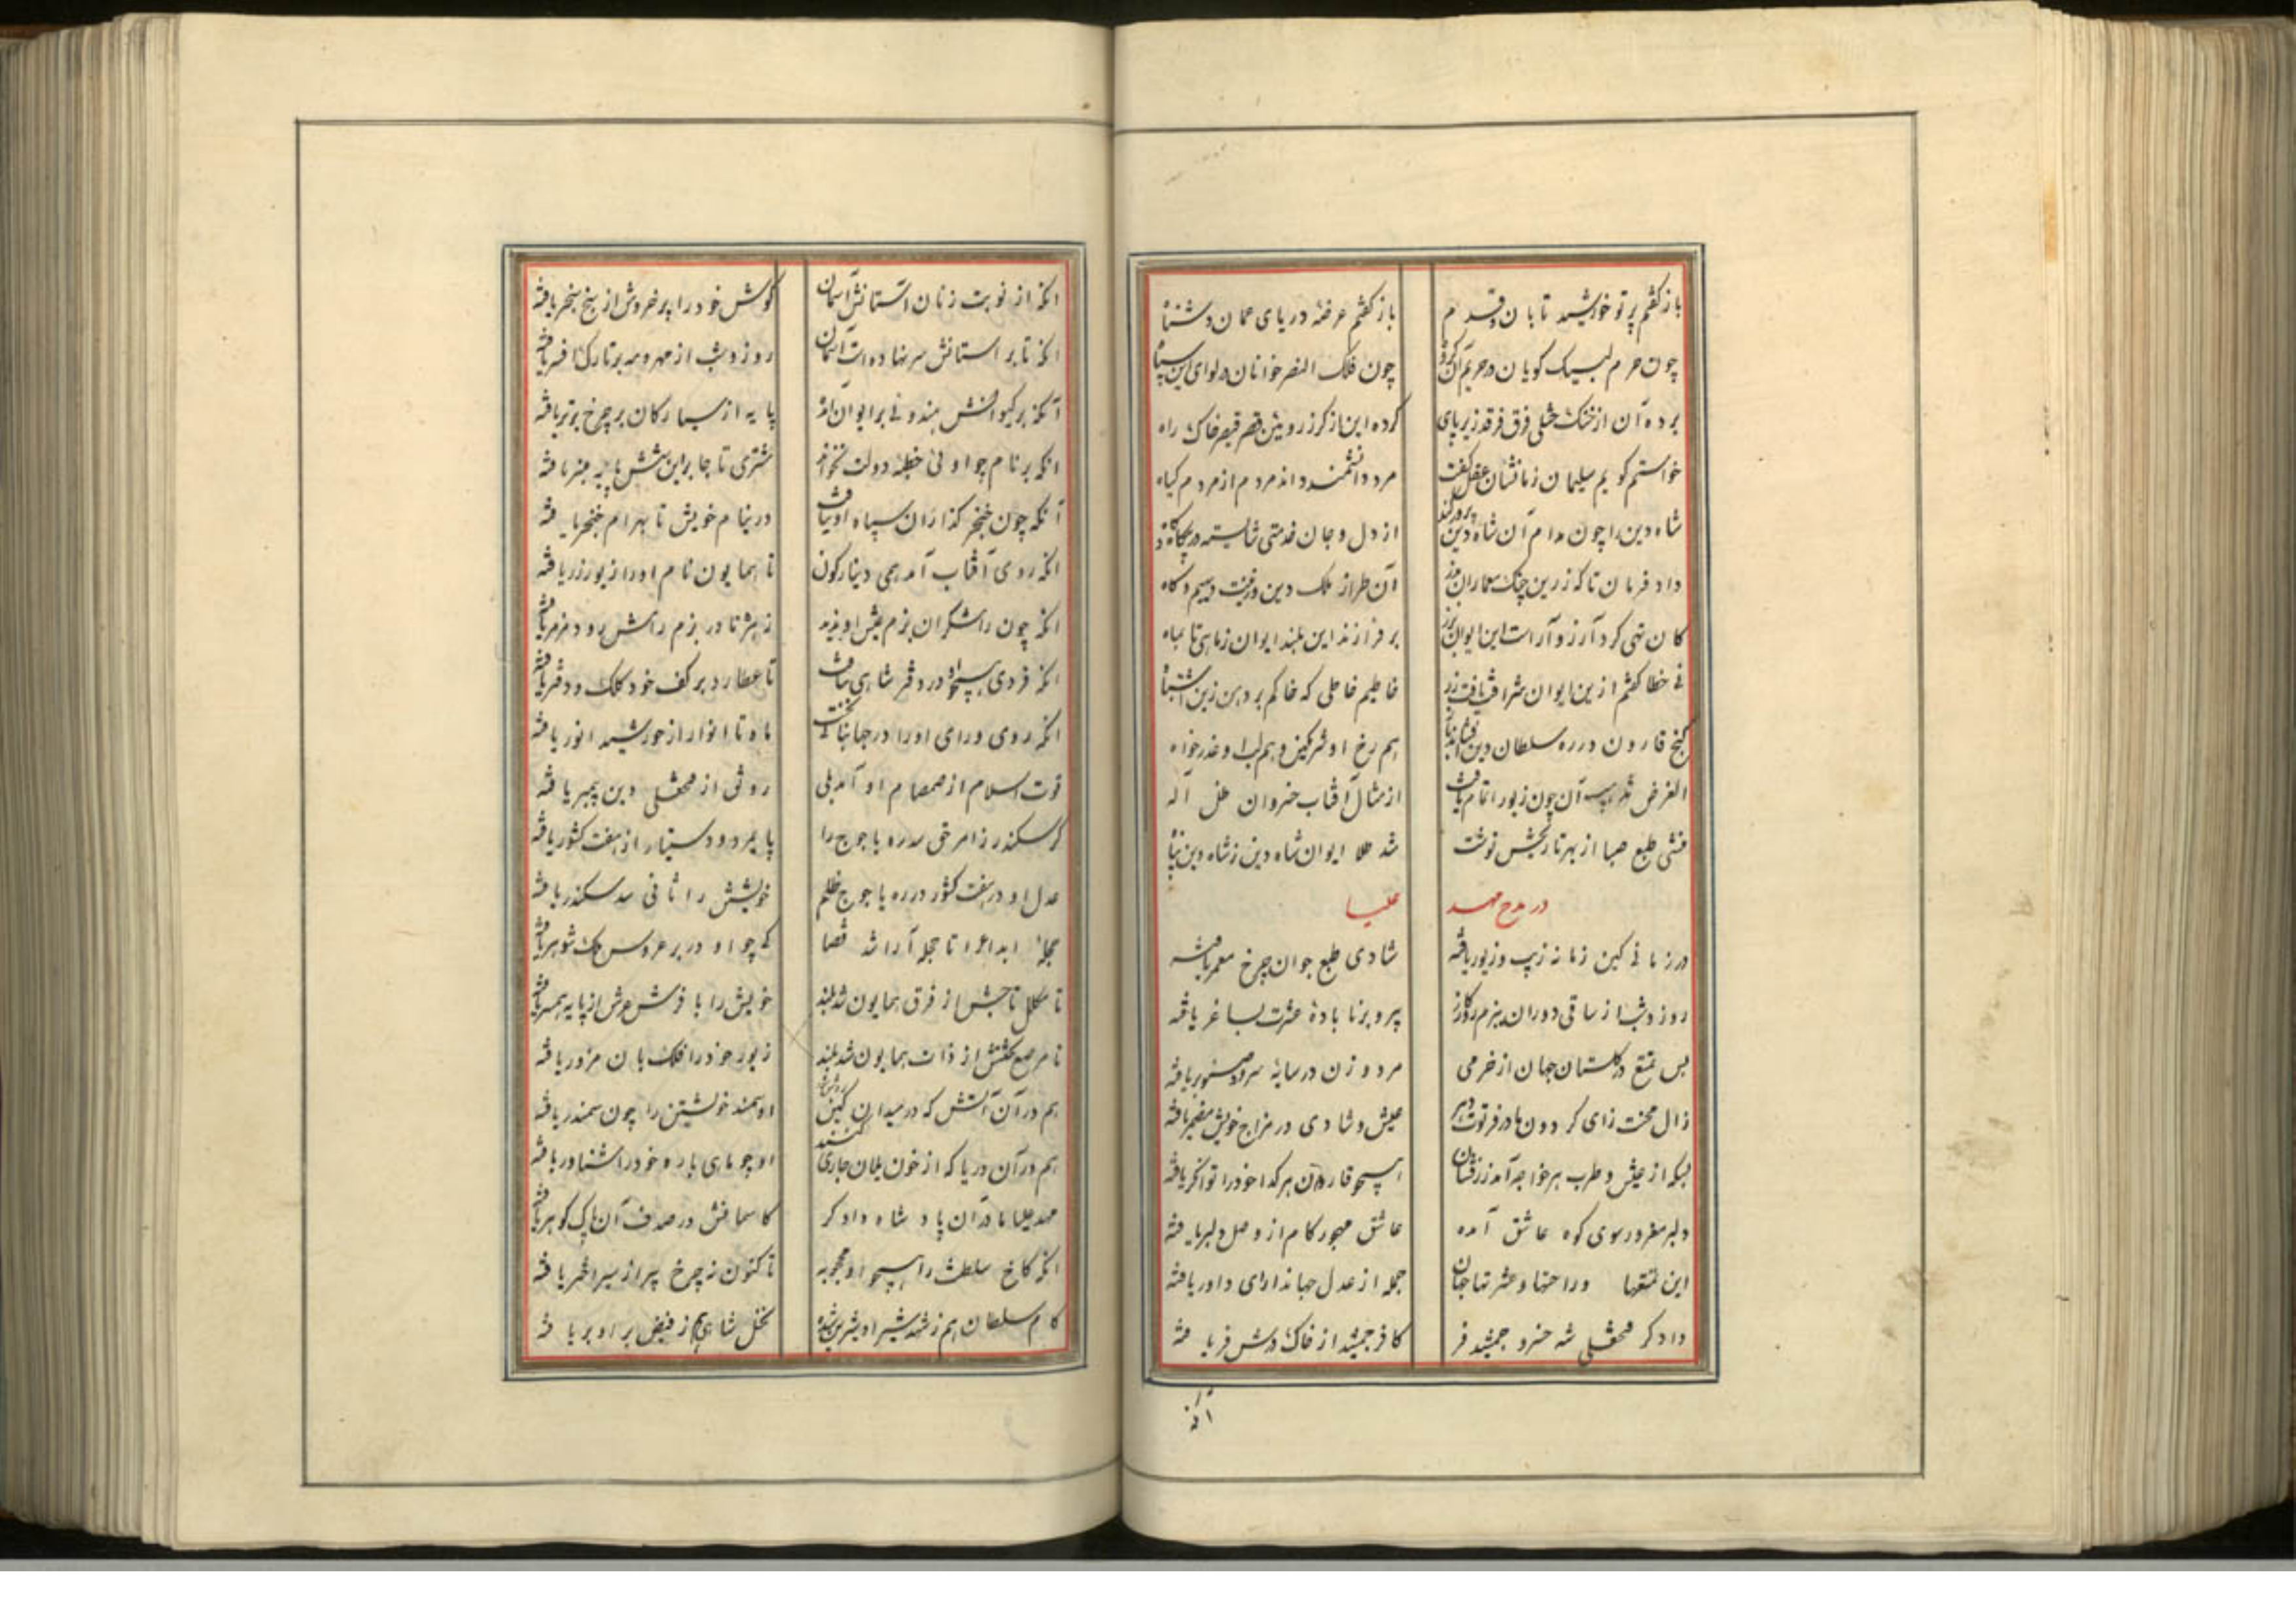 باز گفتم پرتو خورشید تابان و قدم
باز گفتم عرضهٔ دریای عمان دستگاه
چون حرم لبیک کویان در حریم آن
چون فلک النصر خوانان در لوای این سپاه
برده آن از خنک ختلی فرق فرقد زیر پای
کرده این از کرز رویین قصر قیصر خاک راه
خواستم کویم سلیمان زمانشان عقل گفت
مرد دانشمند داند مردم از مردم کیاه
شاه دین را چون مدام آن شاه دین
از دل و جان خدمتی شایسته در
داد فرمان تا که زرین چنک معماران
آن طراز ملک دین و زینت دیهیم و کاه
کان تهی کرد آرزو آراست این ایوان
بر فرازند این بلند ایوان ز ماهی تا بماه
نی خطا گفتم ازین ایوان شرافت یافت زر
خاطیم خاطی که خاکم بر دهن زین اشتباه
کنج قارون در ره سلطان دین
هم رخ او شرمکین و هم لب او عذرخواه
الغرض آن چون زیور اتمام یافت
از مثال آفتاب خسروان ظل اله
منشی طبع صبا از بهر تاریخش نوشت
شد طلا ایوان شاه دین ز شاه دین پناه
در مدح مهد علیا
در زمانی کین زمانه زیب و زیور یافته
شادی طبع جوان چرخ معمر یافته
روز و شب از ساقی دوران ببزم روزکار
پیر و برنا بادهٔ عشرت بساغر یافته
بس تمتع در کلستان جهان از خرمی
مرد و زن در سایهٔ سرو و صنوبر یافته
زال محنت زای کردون مادر فرتوت دهر
عیش و شادی در مزاج خویش مضمر یافته
بسکه از عیش و طرب هر خواجه آمد زرفشان
همچو قارون هر کدا خود را توانکر یافته
دلبر مغرور سوی کوه عاشق آمده
عاشق مهجور کام از وصل دلبر یافته
این تمتعها و راحتها و عشرتها جهان
جمله از عدل جهاندارای داور یافته
دادکر فتحعلی شه خسرو جمشید فر
کافر جمشید از خاک درش فر یافته
انکه از نوبت زنان استانش آسمان
کوش خود را پر خروش از پنج سنجر یافته
انکه تا بر استانش سر نهاده است آسمان
روز و شب از مهر و مه بر تارک افسر یافته
آنکه بر کیوانش هندوئی بر ایوان
پایه از سیارکان بر چرخ برتر یافته
انکه بر نام چو او نی خطبهٔ دولت نخواند
مشتری تا جا بر این شش پایه منبر یافته
آنکه چون خنجر کذاران سپاه او نیافت
در نیام خویش تا بهرام خنجر یافته
انکه روی آفتاب آمد همی دینارکون
تا همایون نام او را زیور زر یافته
انکه چون رامشکران بزم عیش او ندید
زهره تا در بزم رامش رود و مزمر یافته
انکه فردی همچو او در دفتر شاهی نیافت
تا عطارد بر کف خود کلک و دفتر یافته
انکه روی و رای او را در جهان
ماه تا انوار از خورشید انور یافته
قوت اسلام از صمصام او آمد بلی
رونق از فتحعلی دین پیمبر یافته
کر سکندر ز امر حق سد ره یاجوج را
پایمرد و دستیار از هفت کشور یافته
عدل او در هفت کشور در ره یاجوج ظلم
خویشتن را ثانی سد سکندر یافته
حجلهٔ ابداع را تا حجله آرا شد قضا
که چو او در بر عروس ملک شوهر یافته
تا مکلل تاجش از فرق همایون شد بلند
خویش را با فرش عرش از پایه همسر یافته
تا مرصع تختش از ذات همایون شد بلند
زیور خود را فلک بان مزور یافته
هم در آن آتش که در میدان کین
او سمند خویشتن را چون سمندر یافته
هم در آن دریا که از خون یلان جاری کنند
او چو ماهی باره خود را شناور یافته
مهد علیا مادر آن پادشاه دادکر
کاسمانش در صدف آن پاک کوهر یافته
انکه کاخ سلطنت را همچو او محجوبه
تا کنون نه چرخ پیر از سیر اختر یافته
کام سلطان هم ز شهد شیر او شیرین شده
نخل شاهی هم ز فیض بر او بر یافته